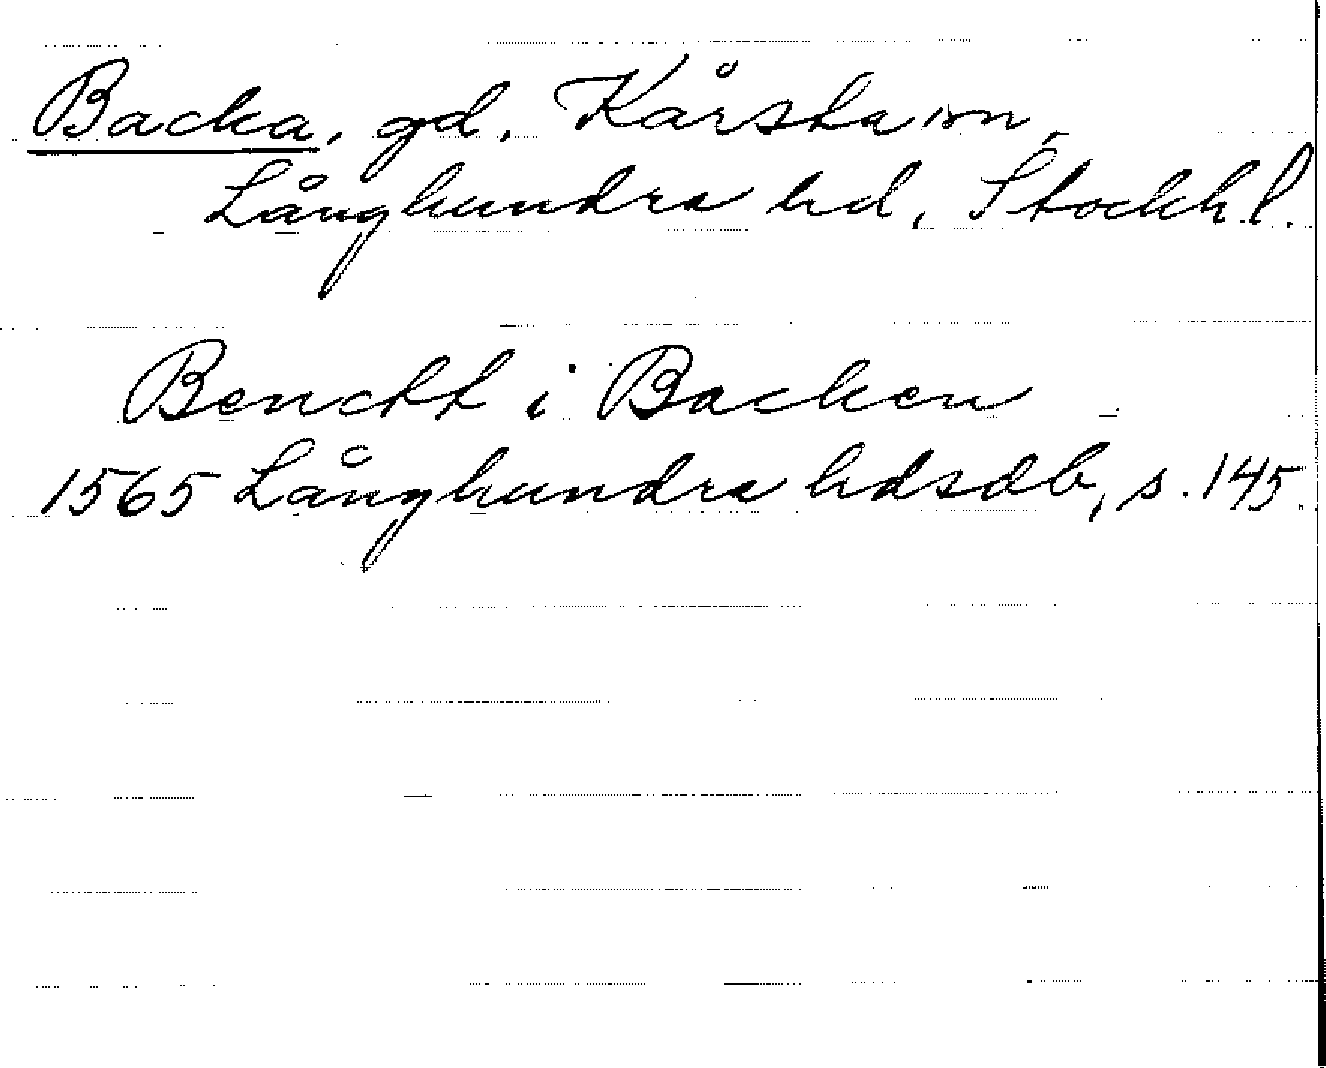 Backa, gd, Kårsta sn,
Långhundra hd, Stockh. l.
Benckt i Backen
1565 Långhundra hdsdb, s. 145.